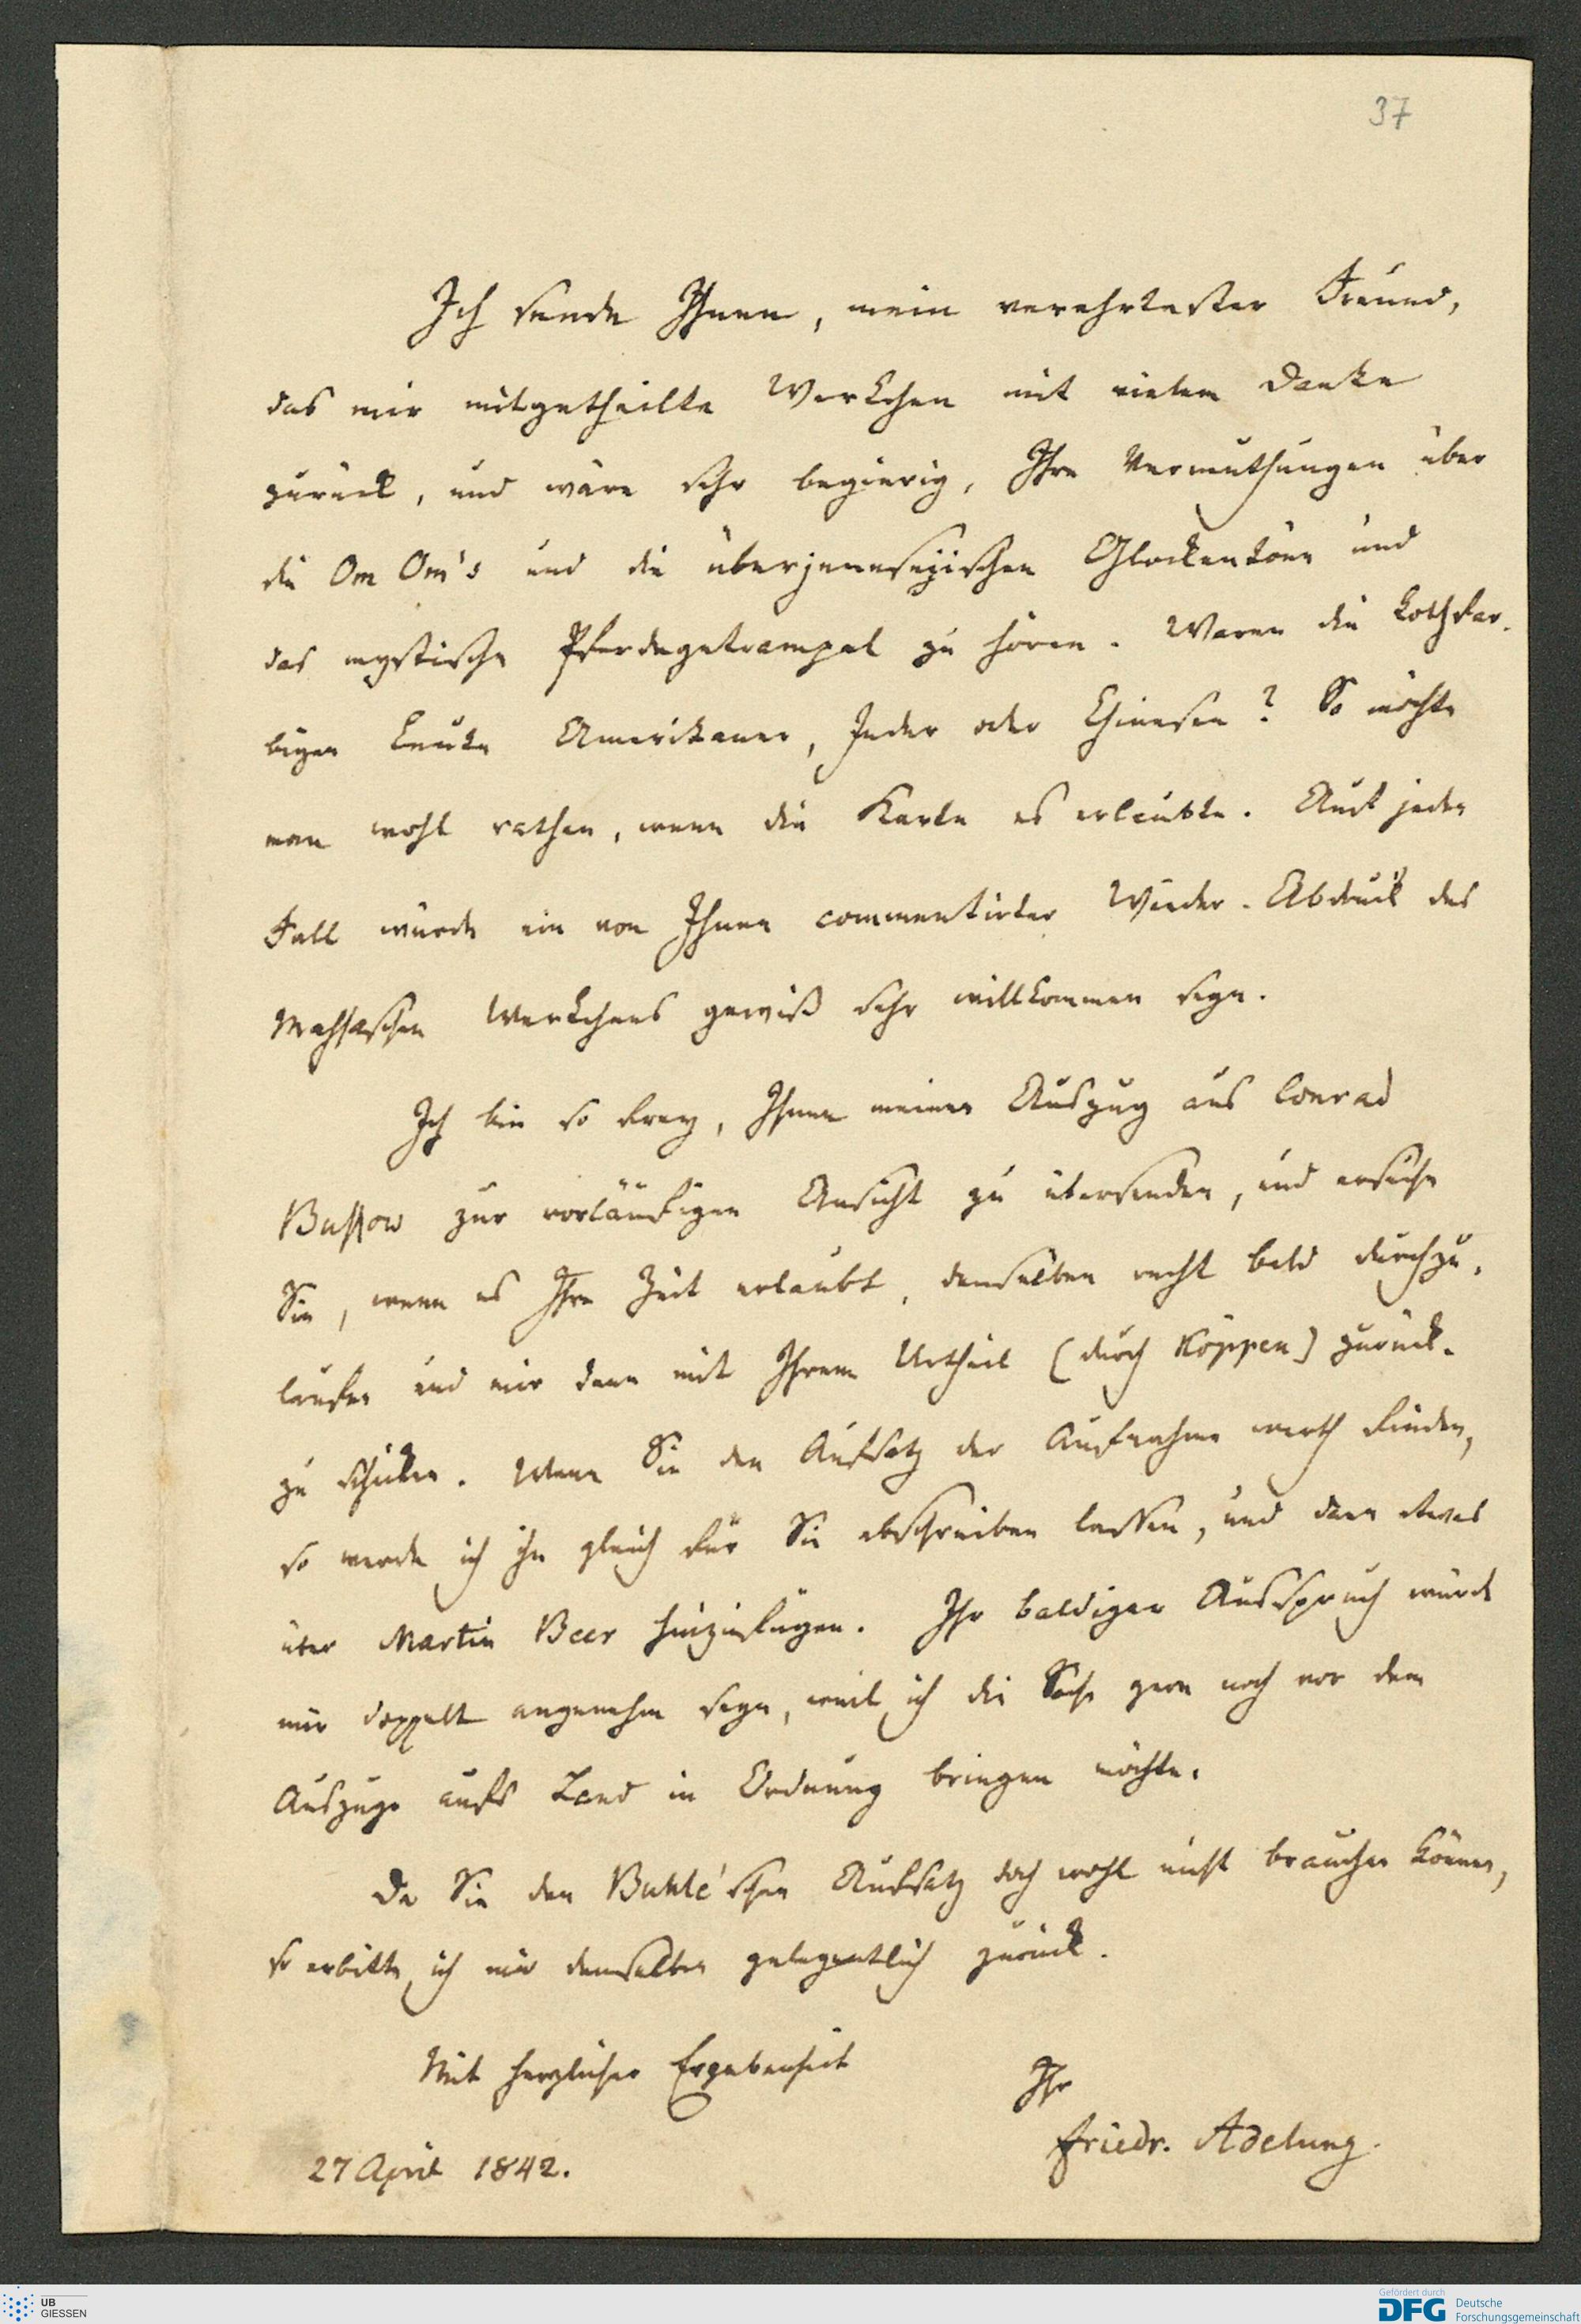 37
Ich sende Ihnen, mein verehrtester Freund,
das mir mitgetheilte Werkchen mit vielem Danke
zurück, und wäre sehr begierig, Ihre Vermuthungen über
die Om Om's und die überjeneseyischen Glockentöne und
das mystische Pferdegetrampel zu hören. Waren die rothfar-
bigen Leute Amerikaner, Inder oder Chinesen? So möchte
man wohl rathen, wenn die Karte es erlaubte. Auf jeden
Fall würde ein von Ihnen commentirter Wieder-Abdruck des
Werkchens gewiß sehr willkommen seyn.
Ich bin so frey, Ihnen meinen Auszug aus Conrad
Bussow zur vorläufigen Ansicht zu übersenden, und ersuche
Sie, wenn es Ihre Zeit erlaubt, denselben recht bald durchzu-
laufen und mir dann mit Ihrem Urtheil (durch Köppen) zurück-
zu schicken. Wenn Sie den Aufsatz der Aufnahme werth finden,
so werde ich ihn gleich für Sie abschreiben lassen, und dann etwas
über Martin Beer hinzufügen. Ihr baldiger Ausspruch würde
mir doppelt angenehm seyn, weil ich die Sache gern noch vor dem
Auszuge aufs Land in Ordnung bringen möchte.
Da Sie den Buhle'schen Aufsatz doch wohl nicht brauchen können,
so erbitte ich mir denselben gelegentlich zurück.
Mit herzlicher Ergebenheit
Ihr
Friedr. Adelung.
27 April 1842.
UB
GIESSEN
Gefördert durch
DFG Deutsche
Forschungsgemeinschaft